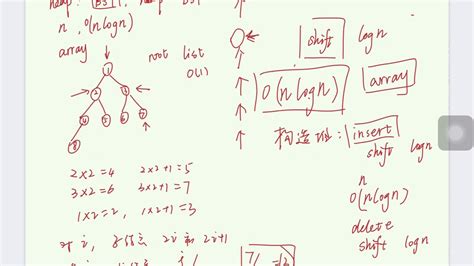 heap: BST, heap BST
n, O(n log n)
array
root list
O(1)
1
2 3
4 5 6 7
8
2×2=4 2×2+1=5
3×2=6 3×2+1=7
1×2=2, 1×2+1=3
对 i, 2i 和 2i+1
shift log n
O(n log n) array
构造: insert
shift log n
n
O(n log n)
delete
shift log n